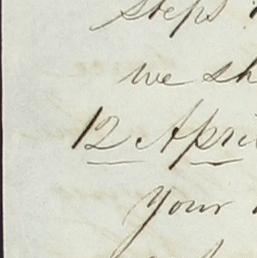 steps
we sh
12 Apri
Your